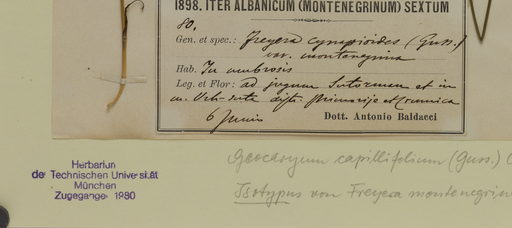 1898. ITER ALBANICUM (MONTENEGRINUM) SEXTUM
80.
Gen. et spec.: Freyera cynapioides (Guss.)
var. montenegrina
Hab. In umbrosis
Leg. et Flor: ad jugum Sutorman et in
m. distr. Primorije et Crmnica
6 Junio
Dott. Antonio Baldacci
Geocaryum capillifolium (Guss.) C
Isotypus von Freyera montenegrin
Herbarium
der Technischen Universität
München
Zugegangen 1980